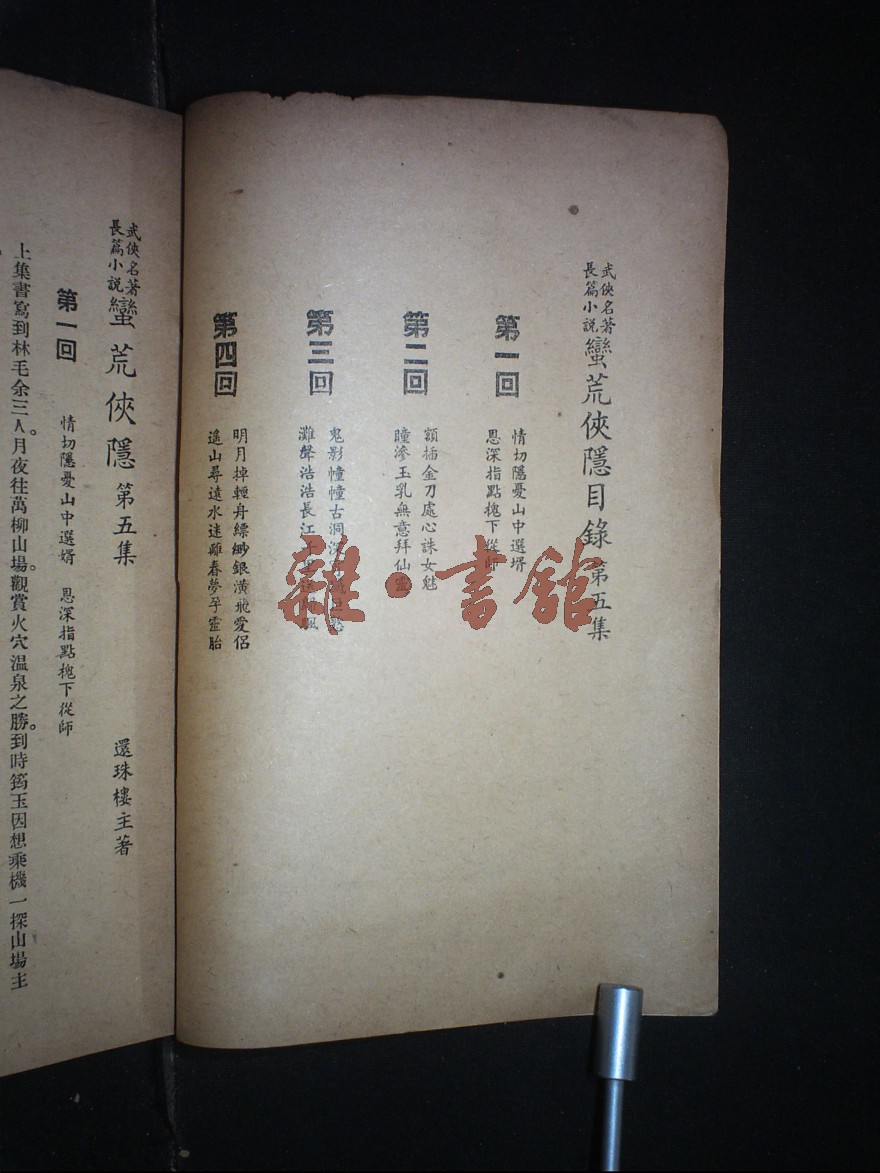 武俠名著
長篇小說
蠻荒俠隱目錄 第五集
第一回
情切隱憂山中選壻
恩深指點槐下從師
第二回
額插金刀處心誅女魃
瞳滲玉乳無意拜仙靈
第三回
鬼影幢幢古洞深
灘聲浩浩長江
第四回
明月掉輕舟縹緲銀潢飛愛侶
遙山尋遠水迷離春夢孕靈胎
雜·書館
武俠名著
長篇小說
蠻荒俠隱 第五集
還珠樓主著
第一回
情切隱憂山中選婿 恩深指點槐下從師
上集書寫到林毛余三人。月夜往萬柳山場。觀賞火穴溫泉之勝。到時筠玉因想乘機一探山場主